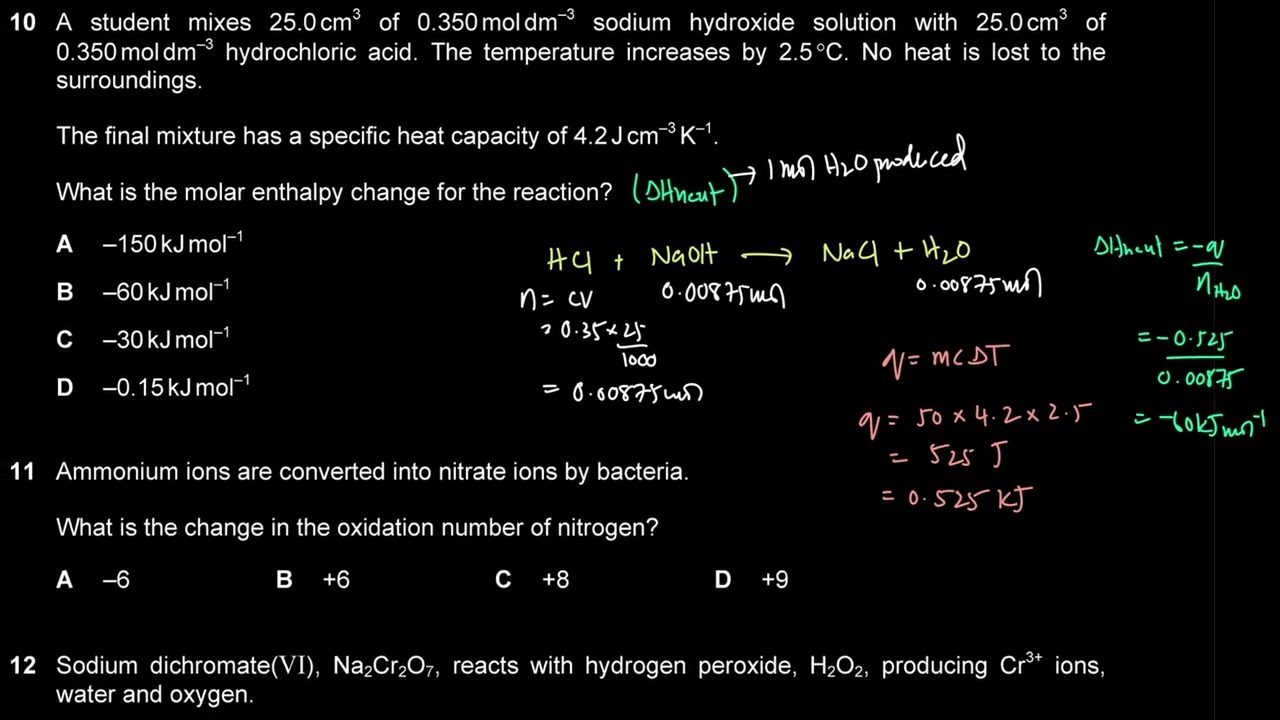 10 A student mixes 25.0 cm³ of 0.350 mol dm⁻³ sodium hydroxide solution with 25.0 cm³ of
0.350 mol dm⁻³ hydrochloric acid. The temperature increases by 2.5 °C. No heat is lost to the
surroundings.
The final mixture has a specific heat capacity of 4.2 J cm⁻³ K⁻¹.
What is the molar enthalpy change for the reaction? (DHneut) → 1 mol H₂O produced
A –150 kJ mol⁻¹
B –60 kJ mol⁻¹
C –30 kJ mol⁻¹
D –0.15 kJ mol⁻¹
HCl + NaOH → NaCl + H₂O
n = CV 0.00875 mol 0.00875 mol
= 0.35 × 25/1000
= 0.00875 mol
q = mcDT
q = 50 × 4.2 × 2.5
= 525 J
= 0.525 KJ
DHneut = -q/nH₂O
= -0.525/0.00875
= -60 kJ mol⁻¹
11 Ammonium ions are converted into nitrate ions by bacteria.
What is the change in the oxidation number of nitrogen?
A –6 B +6 C +8 D +9
12 Sodium dichromate(VI), Na₂Cr₂O₇, reacts with hydrogen peroxide, H₂O₂, producing Cr³⁺ ions,
water and oxygen.